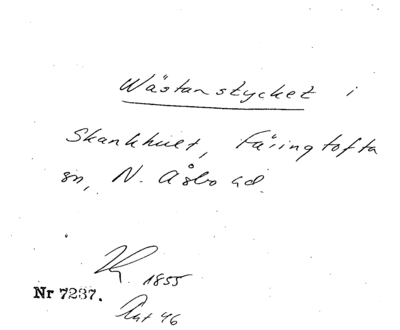 Wästanstycket i
Skankhult, Färingtofta
sn, N. Åsbo hd.
1855
Nr 7237.
Akt 46